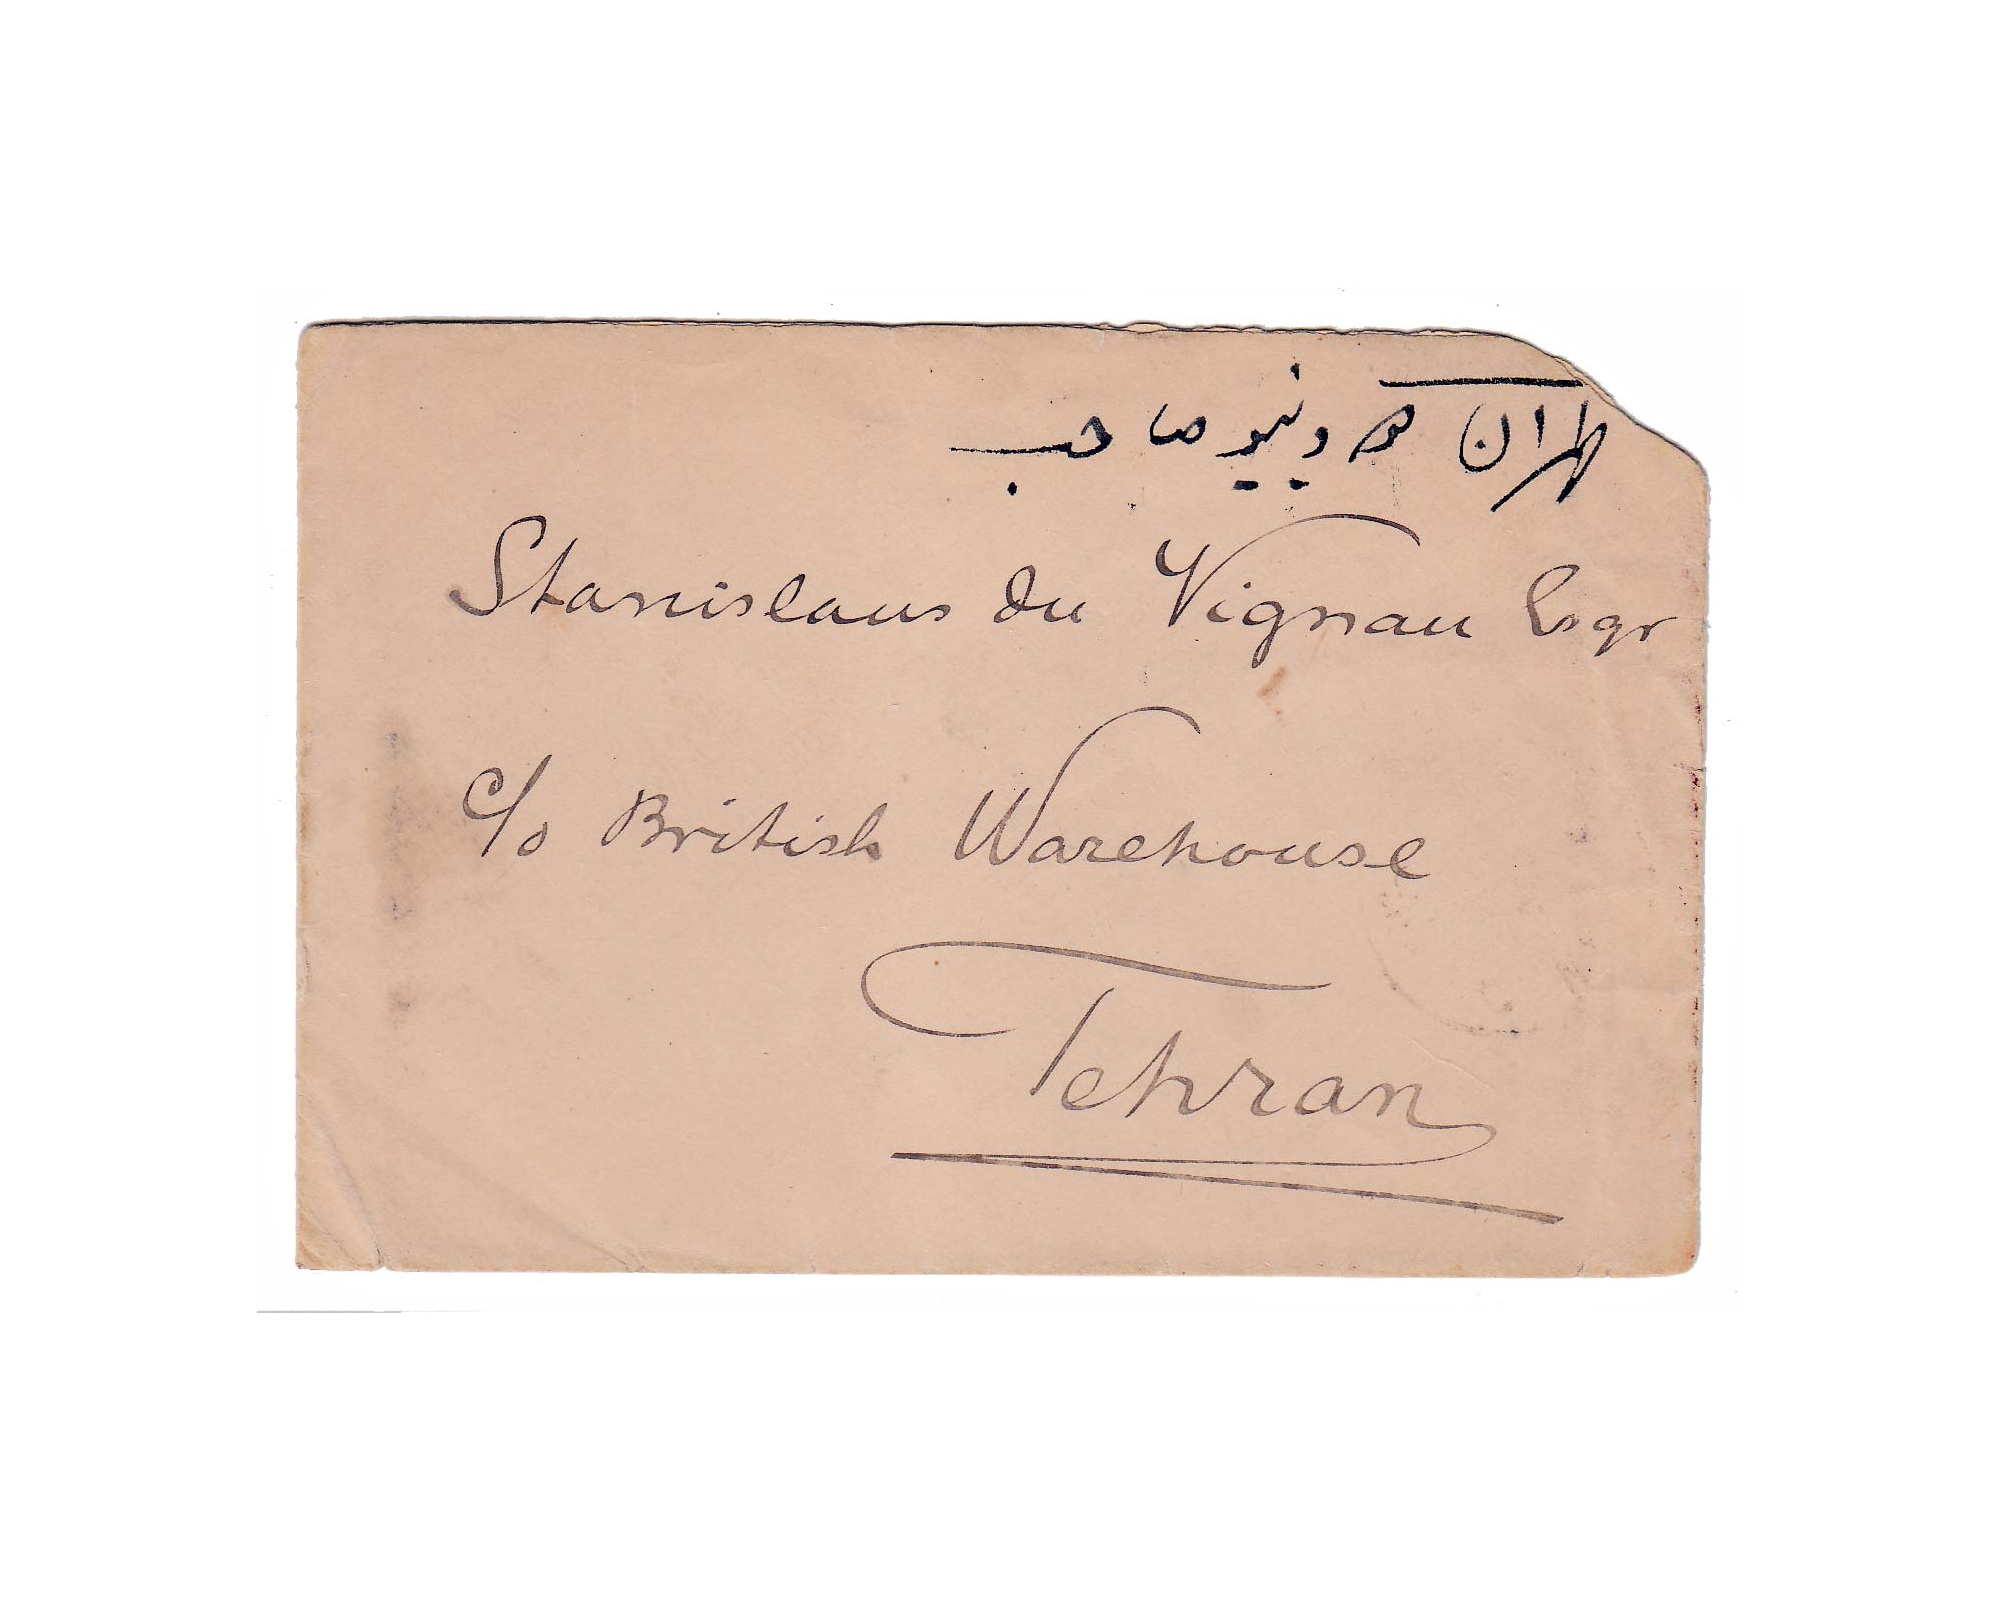 طهران دوینیو صاحب
Stanislaus du Vignau Esqr
c/o British Warehouse
Tehran